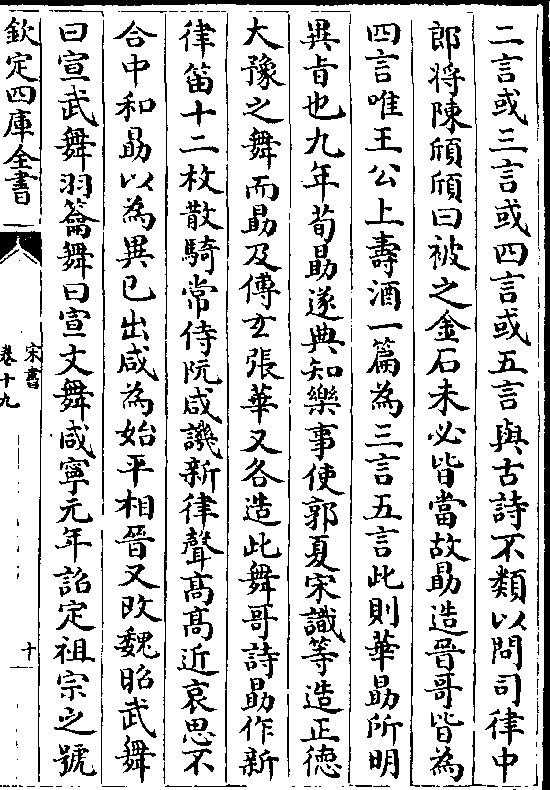 二言或三言或四言或五言與古詩不類以問司律中
郎将陳頎頎曰被之金石未必皆當故勗造晋哥皆為
四言唯王公上壽酒一篇為三言五言此則華勗所明
異旨也九年荀勗遂典知樂事使郭夏宋識等造正徳
大豫之舞而勗及傅𤣥張華又各造此舞哥詩勗作新
律笛十二枚散騎常侍阮咸譏新律聲髙髙近哀思不
合中和勗以為異已出咸為始平相晋又改魏昭武舞
曰宣武舞羽籥舞曰宣文舞咸寧元年詔定祖宗之號
欽定四庫全書
宋書
卷十九
十